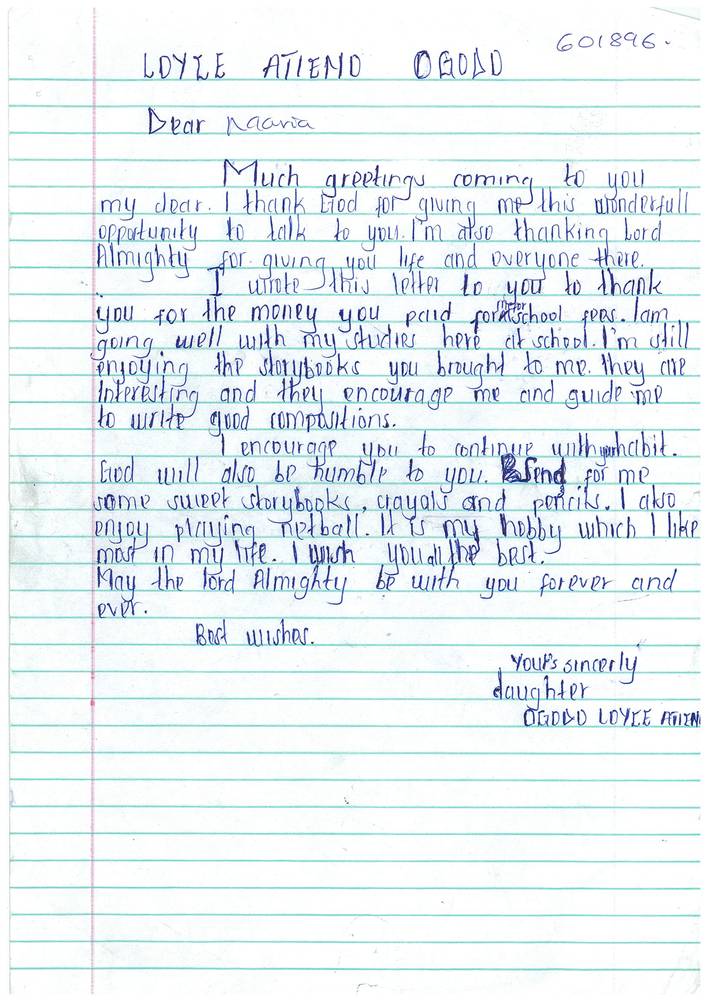 601896.
LOYCE ATIENO OGODO
Dear Naaria
Much greetings coming to you
my dear. I thank God for giving me this wonderfull
opportunity to talk to you. I'm also thanking Lord
Almighty for giving you life and everyone there.
I wrote this letter to you to thank
you for the money you paid for my school fees. I am
going well with my studies here at school. I'm still
enjoying the storybooks you brought to me. they are
interesting and they encourage me and guide me
to write good compositions.
I encourage you to continue with habit.
God will also be humble to you. Send for me
some sweet storybooks, crayols and pencils. I also
enjoy playing netball. It is my hobby which I like
most in my life. I wish you all the best.
May the lord Almighty be with you forever and
ever.
Best wishes.
Yours sincerly
daughter
OGODO LOYCE ATIEN